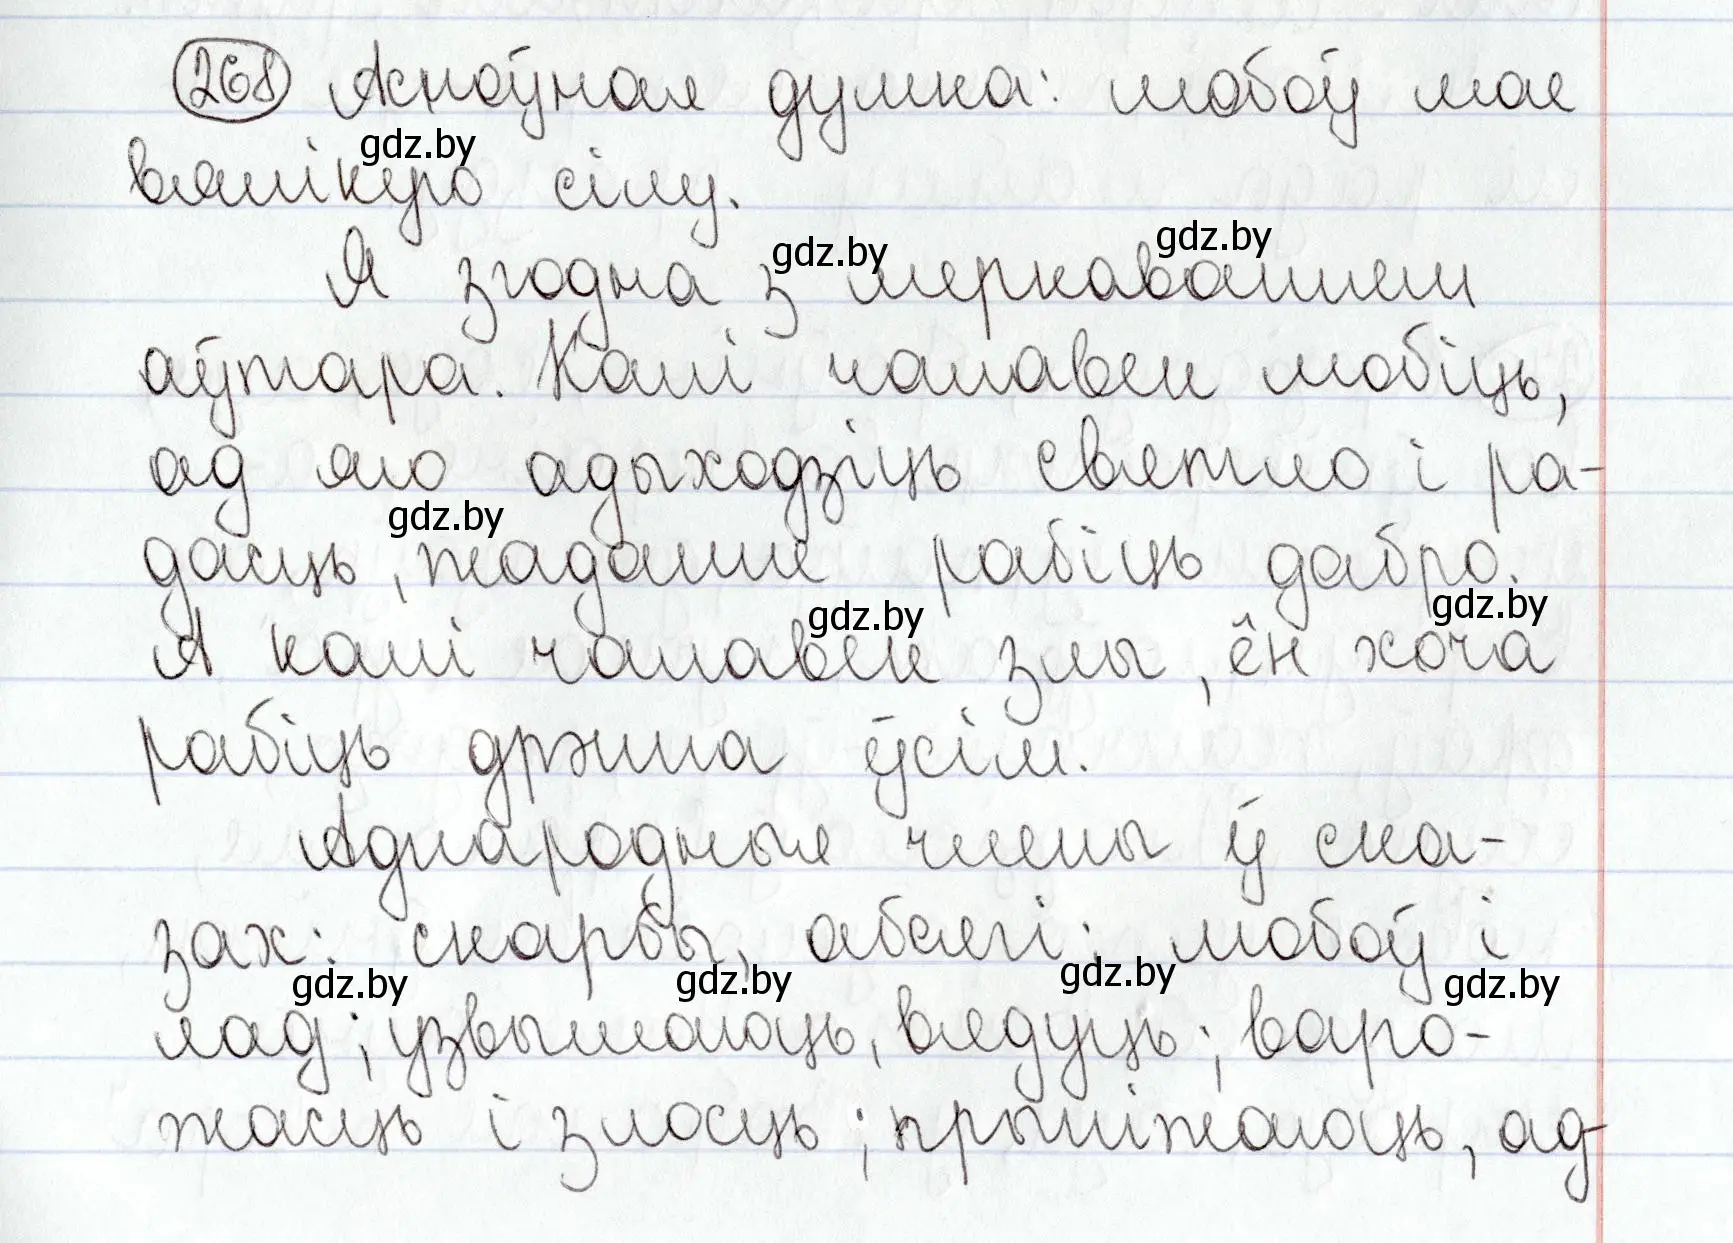 268 Асноўная думка: любоў мае
gdz.by
вялікую сілу.
gdz.by gdz.by
Я згодна з меркаваннем
аўтара. Калі чалавек любіць,
ад яго адыходзіць святло і ра-
gdz.by
дасць, жаданне рабіць дабро.
gdz.by gdz.by
А калі чалавек злы, ён хоча
рабіць дрэнна ўсім.
Аднародныя члены ў ска-
зах: скарбы, абсягі; любоў і
gdz.by gdz.by gdz.by gdz.by
лад; узвышаюць, вядуць; варо-
жасць і злосць; прыніжаюць, ад-